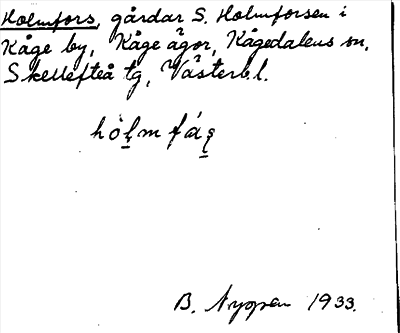 Holmfors, gårdar S. Holmforsen i
Kåge by, Kåge ägor, Kågedalens sn,
Skellefteå tg, Västerb. l.
B. Nygren 1933.